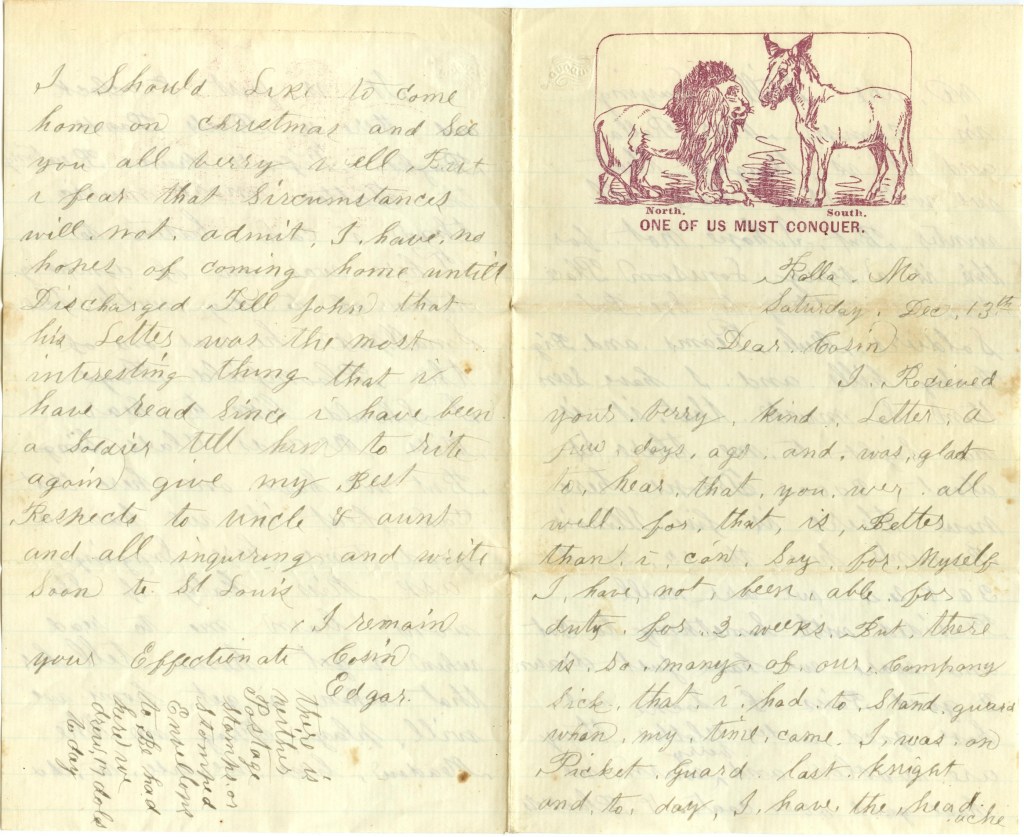 North. South.
ONE OF US MUST CONQUER.
Rolla. Mo
Saturday. Dec. 13th
Dear. Cosin
I. Recieved
your. berry. kind. Letter. a
few days. ago. and. was, glad
to, hear, that, you, wer. all
well. for, that, is, Better
than. i. can. Say. for. Myself
I, have, not, been able. for
duty. for. 2 weeks. But. there
is. so. many. of. our. Company
Sick, that, i. had, to, Stand, guard
whan. my, time, came. I, was, on
Picket. Guard. last. knight
and, to, day, I, have, the, head
ache
I Should Like to come
home on christmas and See
you all berry well But
i fear that Sircumstances
will, not, admit, I, have, no
hopes of coming home untill
Discharged Tell John that
his Letter was the most
interesting thing that i
have read Since i have been
a Soldier tell him to rite
again give my Best
Respects to uncle & aunt
and all inquiring and write
Soon to St Louis
I remain
your Effectionate Cosin
Edgar.
thire is
norther
Postage
Stamps or
Stomped
Envellops
to Be had
draw dols
to day